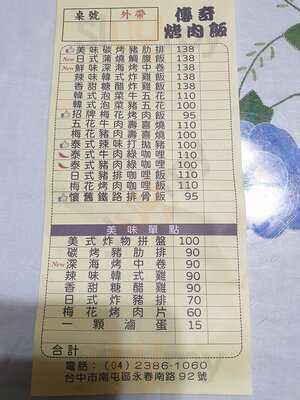 桌號 外帶 傳奇烤肉飯
美味碳烤豬肋排 138
New 日式蒲燒鯛腹飯 138
New 鮮味深海烤中卷 138
辣味韓式炸雞飯 100
香甜糖醋炸雞飯 100
韓式泡菜牛五花 110
韓式泡菜豬五花 100
招牌梅花烤肉飯 95
五花牛肉壽喜燒 110
梅花豬肉壽喜燒 100
泰式辣味打拋豬 100
泰式牛肉綠咖哩 110
泰式豬肉綠咖哩 100
日式豬排咖哩飯 110
梅花烤肉咖哩飯 110
懷舊鐵路排骨飯 95
美味單點
美式炸物拼盤 100
碳烤豬肋排 90
New 深海烤中卷 90
辣味韓式雞 90
香甜糖醋雞 90
日式炸豬排 70
梅花烤肉片 60
一顆滷蛋 15
合計
電話：(04) 2386-1060
台中市南屯區永春南路92號